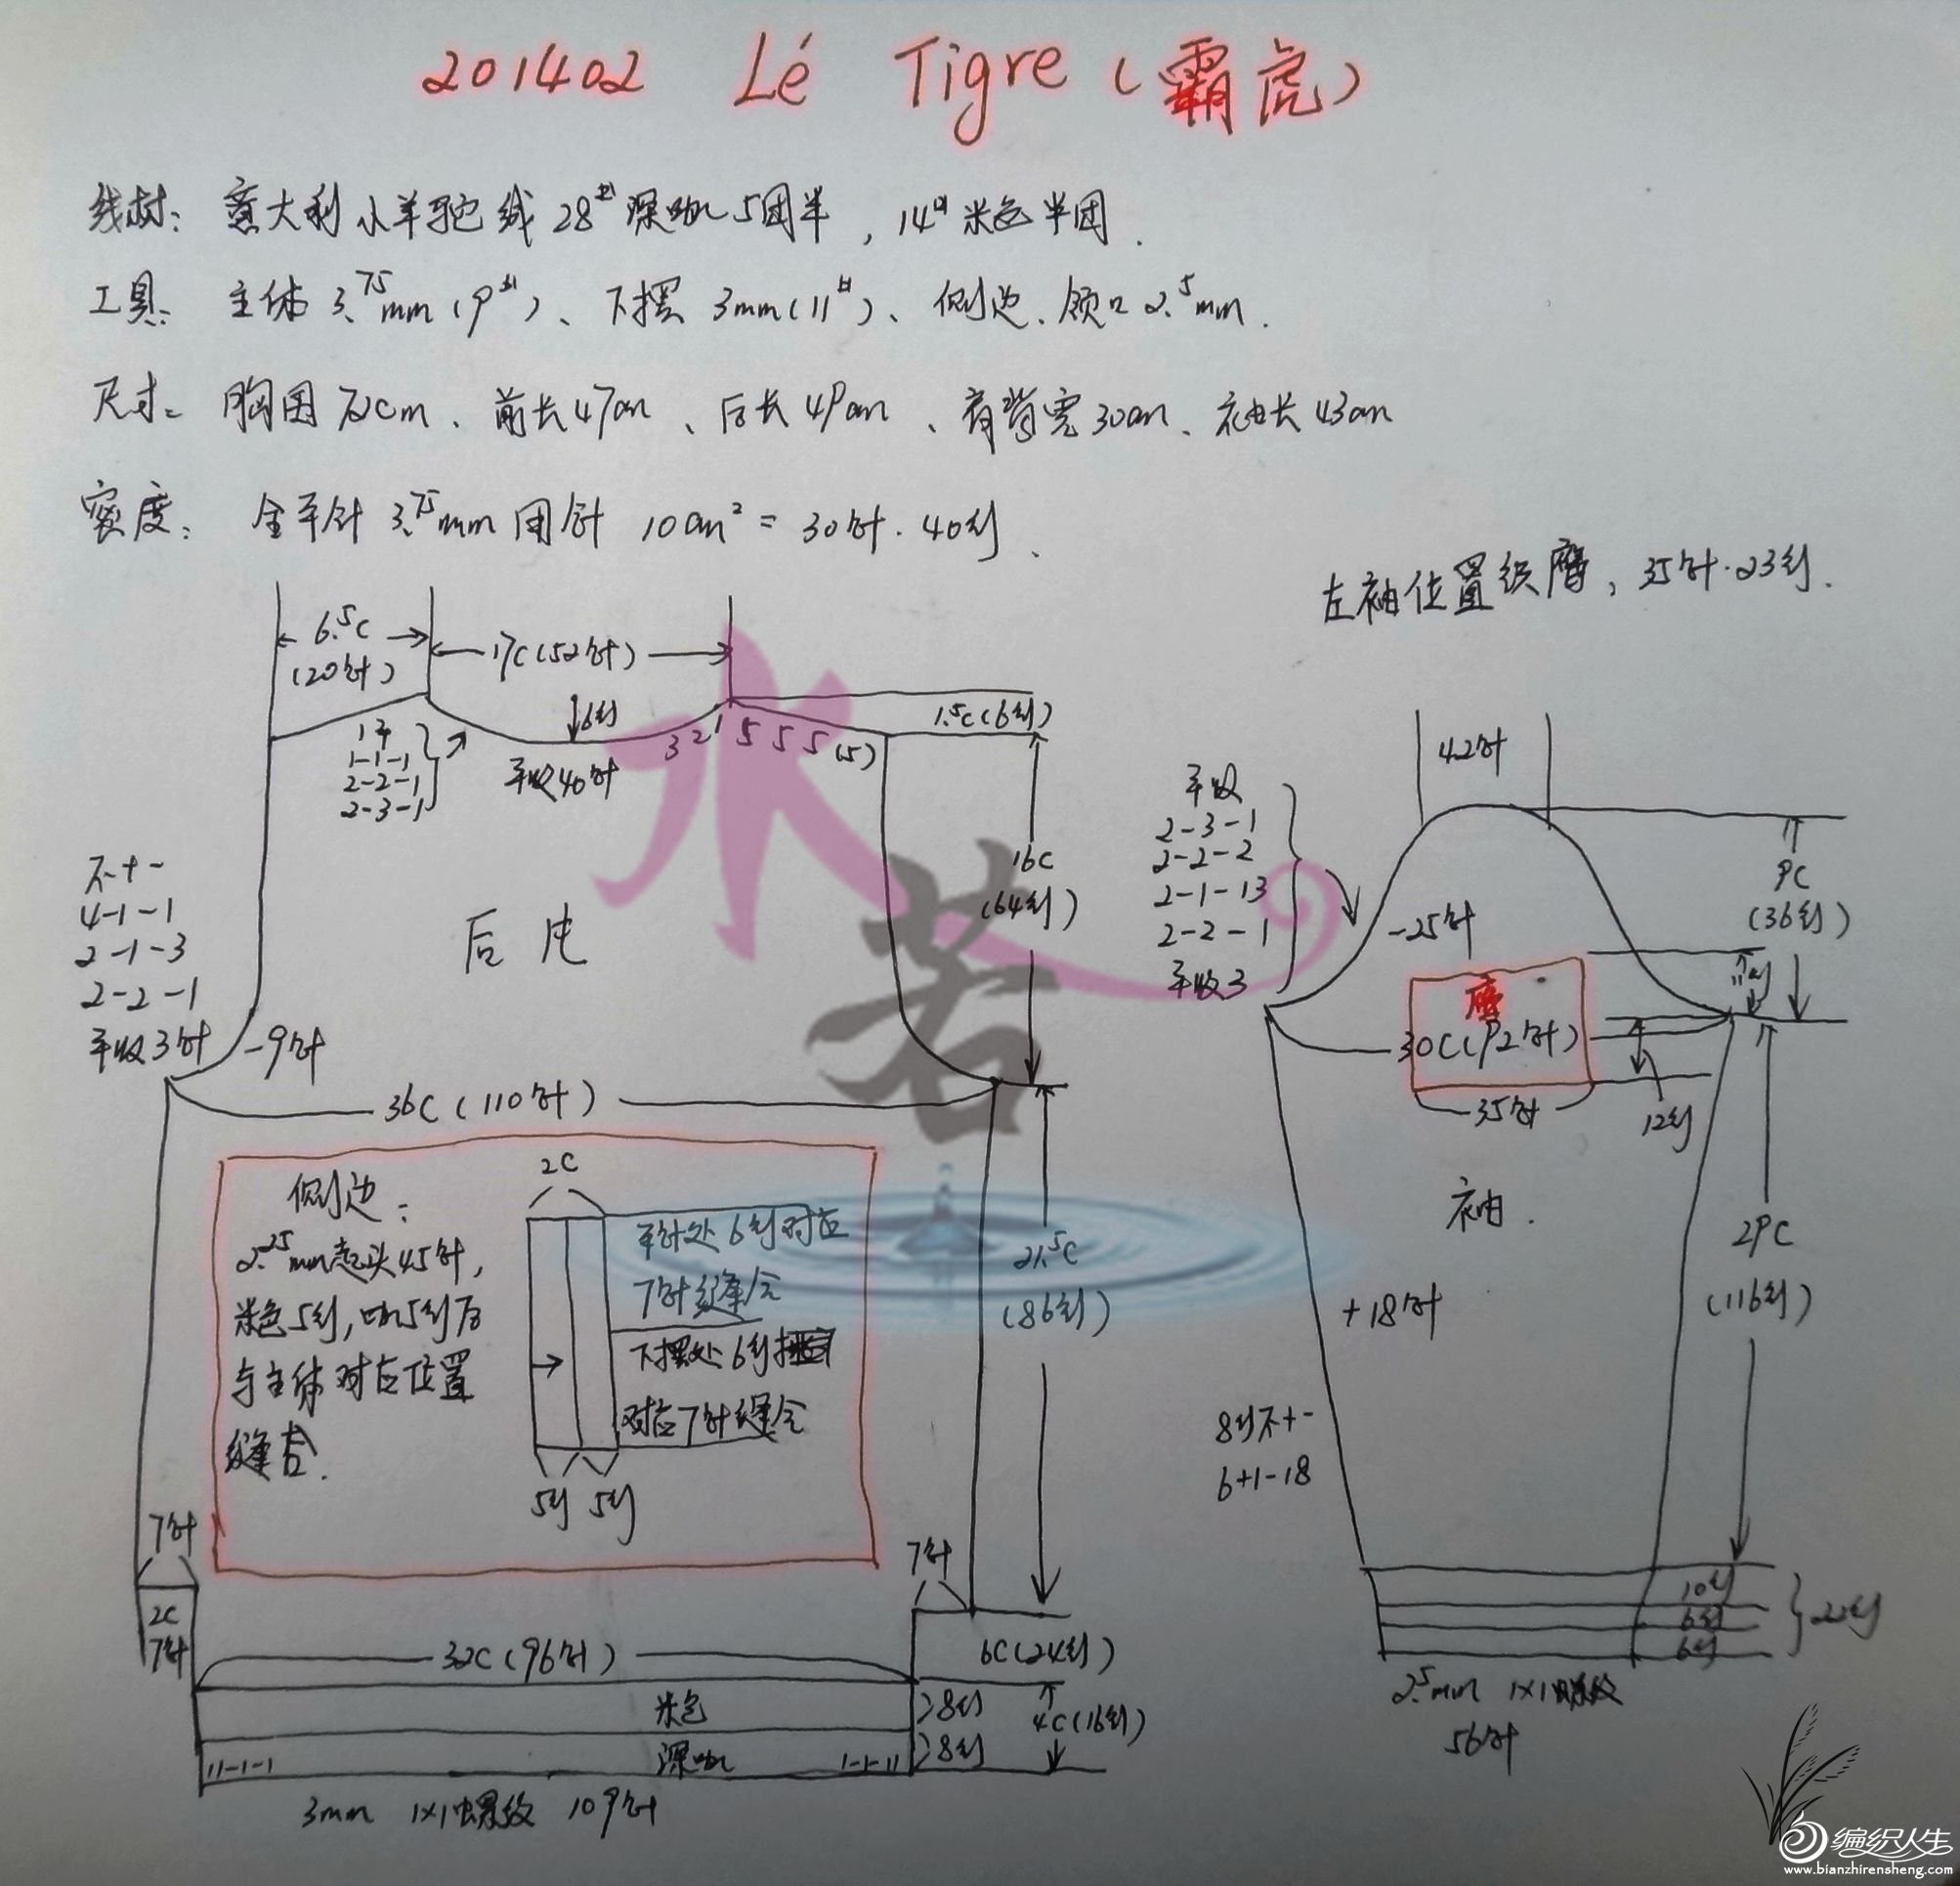 201402 Lé Tigre (霸虎)
线材: 意大利小羊驼线 28# 深咖 5团半, 14# 米色半团.
工具: 主体 3.75mm (9#)、下摆 3mm (11#)、侧边、领口 2.5mm.
尺寸: 胸围72cm、前长47cm、后长49cm、肩背宽30cm、袖长43cm
密度: 全平针 3.75mm 用针 10cm² = 30针·40行、
左袖位置织, 35针·23行.
6.5C
(20针)
17C(52针)
6行
1平
1-1-1
2-2-1
2-3-1
平收40针
3 2 1 5 5 5 (5)
1.5C(6行)
16C
(64行)
不+-
4-1-1
2-1-3
2-2-1
平收3针
-9针
后片
36C(110针)
侧边:
2.25mm起头45针,
米色5行, 咖5行后
与主体对应位置
缝合.
2C
平针处6行对应
7针缝合
下摆处6行
对应7针缝合
5行 5行
21.5C
(86行)
7针
2C
7针
7针
32C(96针)
6C(24行)
米色
8行
深咖
8行
4C(16行)
11-1-1
1-1-11
3mm 1x1螺纹 109针
42针
平收
2-3-1
2-2-2
2-1-13
2-2-1
平收3
-25针
9C
(36行)
11行
30C(92针)
35针
12行
袖.
+18针
29C
(116行)
8行不+-
6+1-18
10行
6行
6行
22行
2.5mm 1x1螺纹
56针
水若
编织人生
www.bianzhirensheng.com